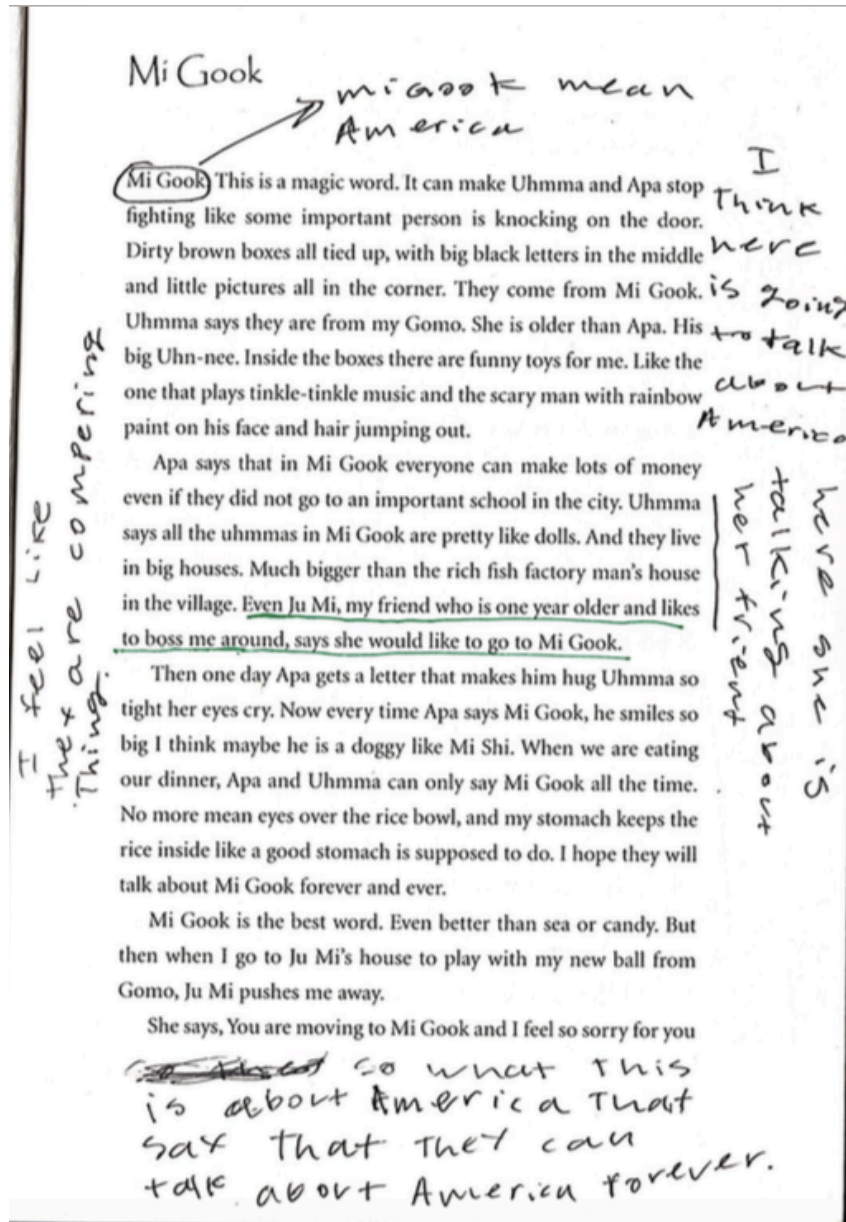 Mi Gook
migook mean
America
Mi Gook This is a magic word. It can make Uhmma and Apa stop
fighting like some important person is knocking on the door.
Dirty brown boxes all tied up, with big black letters in the middle
and little pictures all in the corner. They come from Mi Gook.
Uhmma says they are from my Gomo. She is older than Apa. His
big Uhn-nee. Inside the boxes there are funny toys for me. Like the
one that plays tinkle-tinkle music and the scary man with rainbow
paint on his face and hair jumping out.
Apa says that in Mi Gook everyone can make lots of money
even if they did not go to an important school in the city. Uhmma
says all the uhmmas in Mi Gook are pretty like dolls. And they live
in big houses. Much bigger than the rich fish factory man's house
in the village. Even Ju Mi, my friend who is one year older and likes
to boss me around, says she would like to go to Mi Gook.
Then one day Apa gets a letter that makes him hug Uhmma so
tight her eyes cry. Now every time Apa says Mi Gook, he smiles so
big I think maybe he is a doggy like Mi Shi. When we are eating
our dinner, Apa and Uhmma can only say Mi Gook all the time.
No more mean eyes over the rice bowl, and my stomach keeps the
rice inside like a good stomach is supposed to do. I hope they will
talk about Mi Gook forever and ever.
Mi Gook is the best word. Even better than sea or candy. But
then when I go to Ju Mi's house to play with my new ball from
Gomo, Ju Mi pushes me away.
She says, You are moving to Mi Gook and I feel so sorry for you
I
Think
here
is going
to talk
about
America
here she is
talking about
her frient
I feel like
they are compering
Thing.
so what this
is about America That
say that They can
talk about America forever.